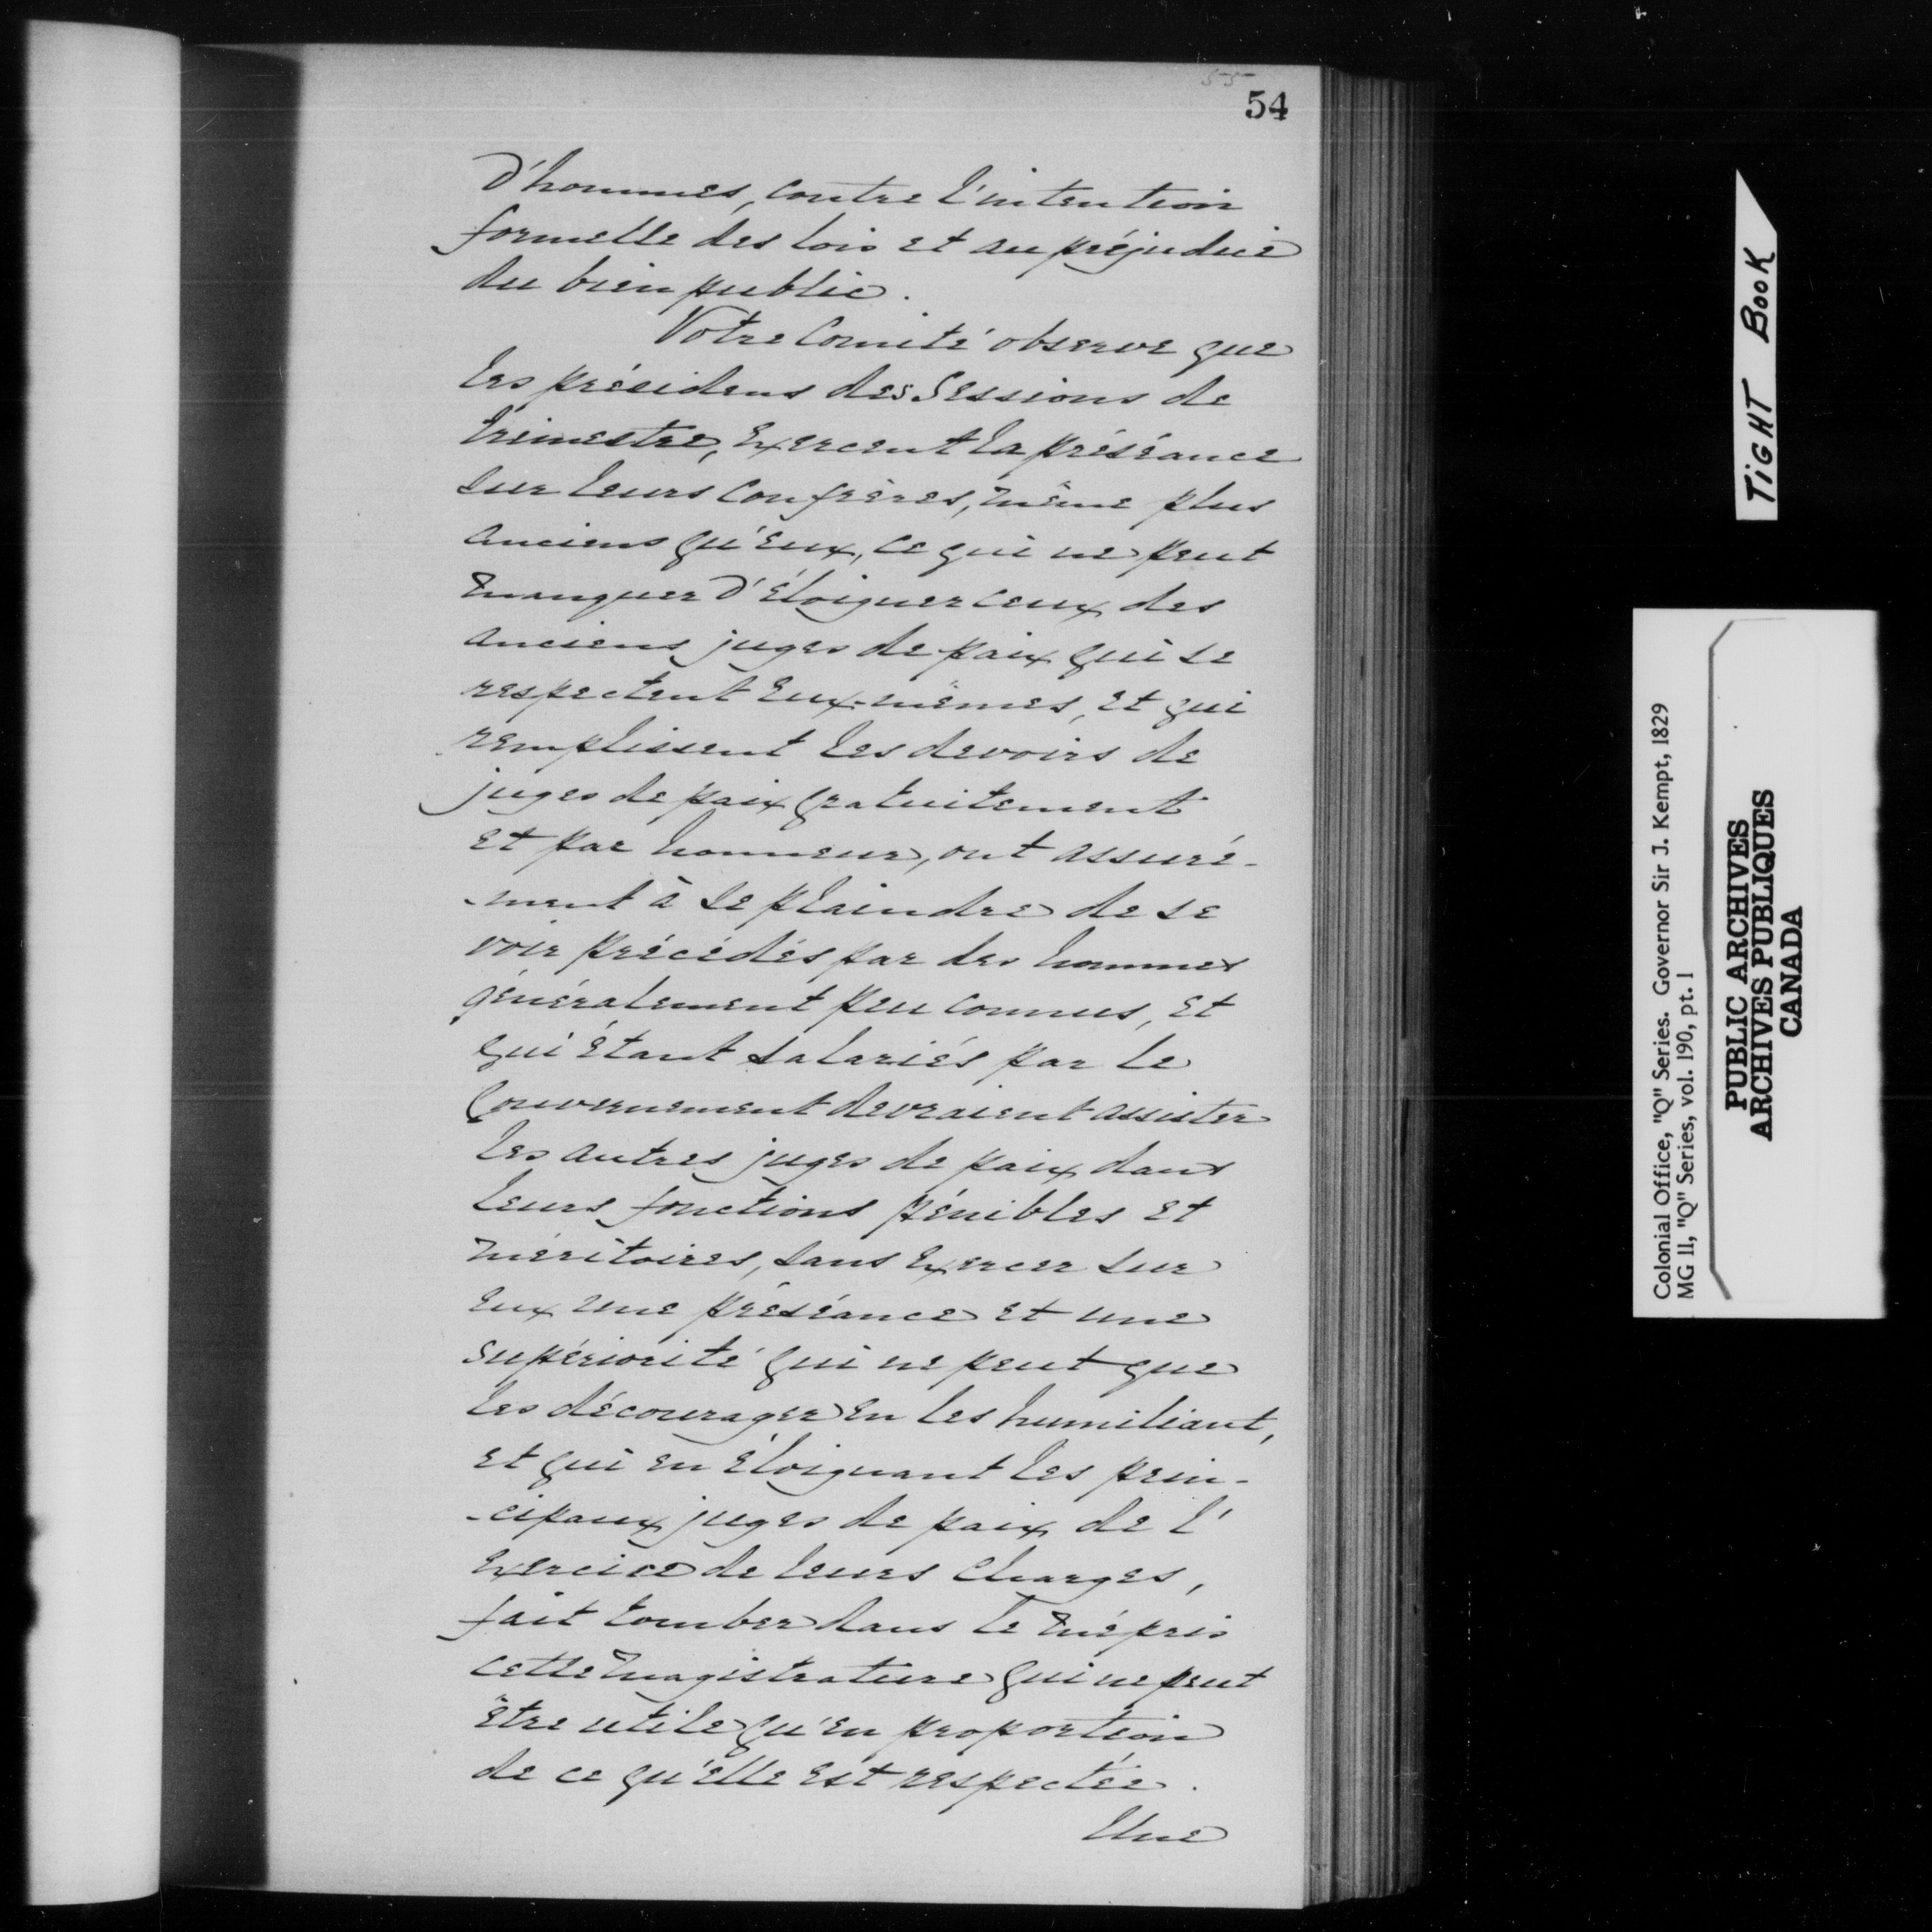 55
54
d'hommes, contre l'intention
formelle des lois et au préjudice
du bien public.
Votre Comité observe que
les présidens des Sessions de
trimestre, exercent la préséance
sur leurs confrères, même plus
anciens qu'eux, ce qui ne peut
manquer d'éloigner ceux des
anciens juges de paix qui se
respectent eux-mêmes, et qui
remplissent les devoirs de
juges de paix gratuitement
et par honneur, ont assuré-
-ment à se plaindre de se
voir précédés par des hommes
généralement peu connus, et
qui étant salariés par le
Gouvernement devraient assister
les autres juges de paix dans
leurs fonctions pénibles et
méritoires, sans exercer sur
eux une préséance et une
supériorité qui ne peut que
les décourager en les humiliant,
et qui en éloignant les prin-
-cipaux juges de paix de l'
exercice de leurs charges,
fait tomber dans le mépris
cette magistrature qui ne peut
être utile qu'en proportion
de ce qu'elle est respectée.
Une
TIGHT BOOK
Colonial Office, "Q" Series. Governor Sir J. Kempt, 1829
MG 11, "Q" Series, vol. 190, pt. 1
PUBLIC ARCHIVES
ARCHIVES PUBLIQUES
CANADA